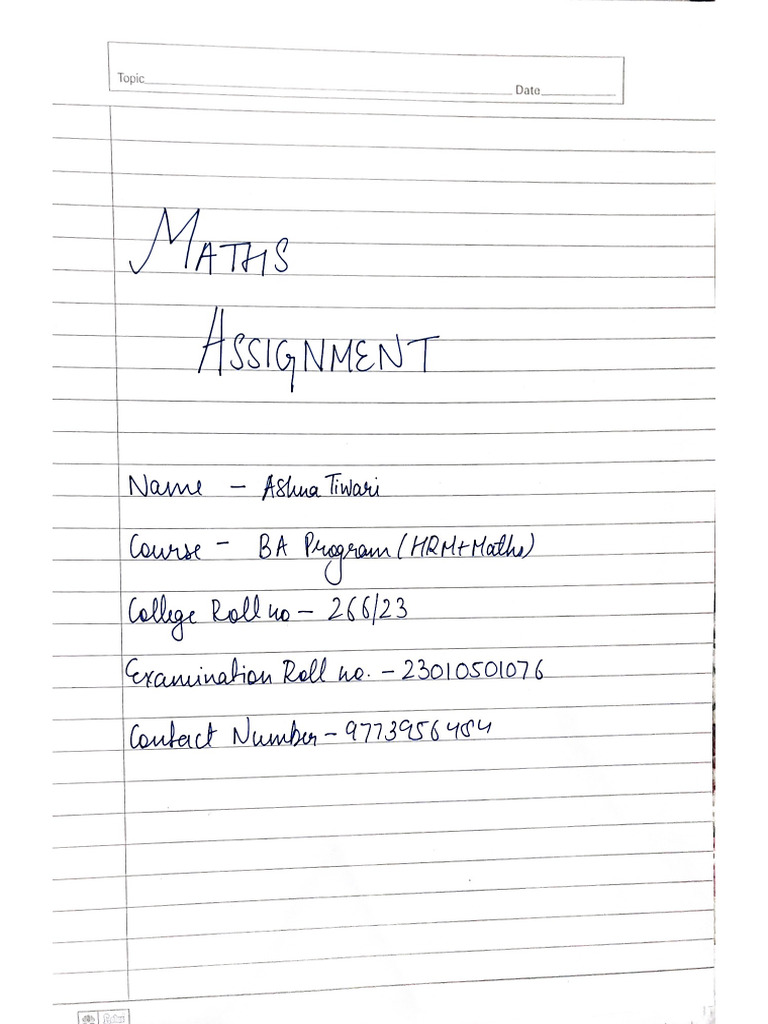 Topic Date
MATHS
ASSIGNMENT
Name - Ashna Tiwari
Course - BA Program (HRM+Maths)
College Roll no - 266/23
Examination Roll no. - 23010501076
Contact Number - 9773956484